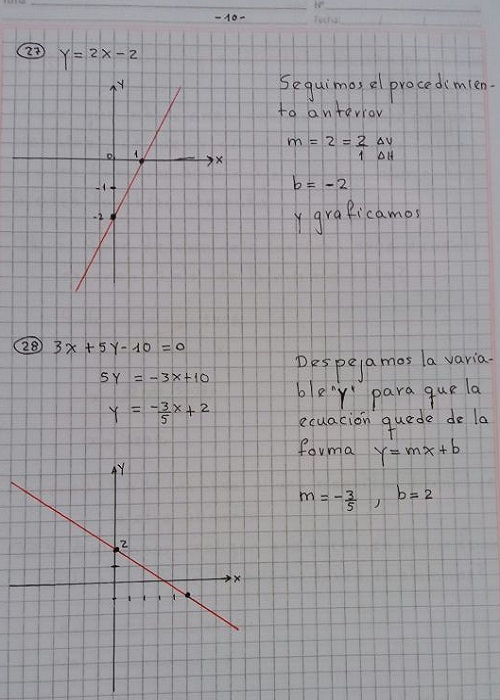 -10-
27 Y = 2X - 2
Seguimos el procedimien-
to anterior
m = 2 = 2/1 ΔV/ΔH
b = -2
y graficamos
Y
0 1 X
-1
-2
28 3X + 5Y - 10 = 0
5Y = -3X + 10
Y = -3/5 X + 2
Despejamos la varia-
ble "Y" para que la
ecuación quede de la
forma Y = mX + b
m = -3/5 , b = 2
Y
2
X